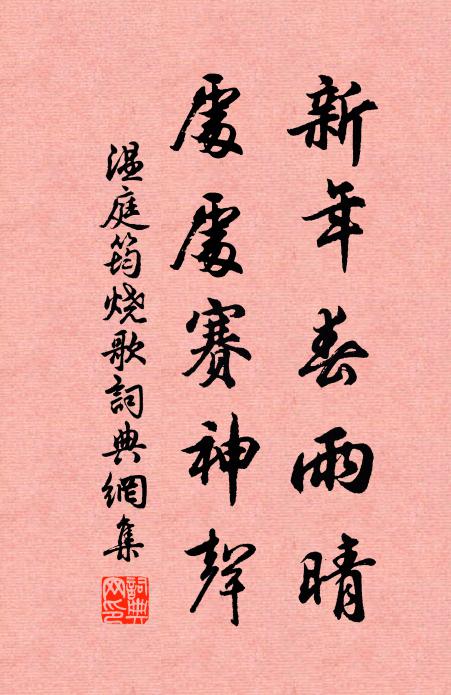 新年春雨晴
處處賽神聲
温庭筠烧歌詞典網集
詞典網印